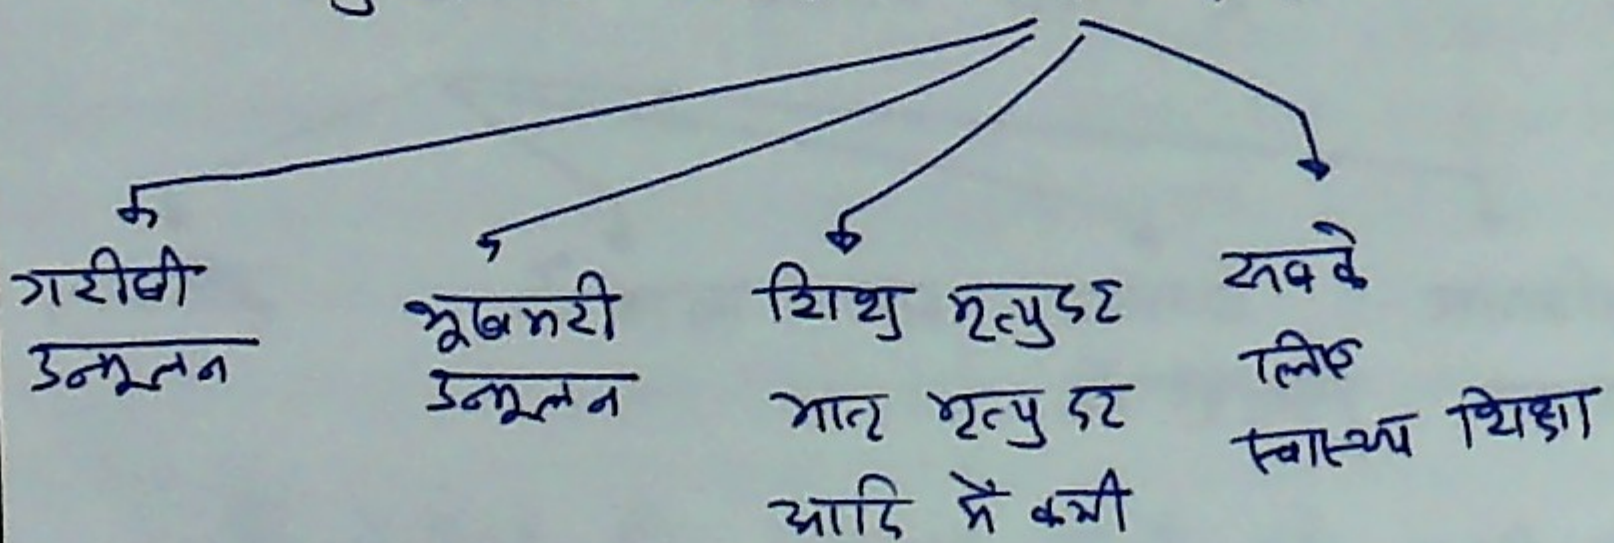 गरीबी
उन्मूलन
भूखमरी
उन्मूलन
शिशु मृत्युदर
मातृ मृत्यु दर
आदि में कमी
सबके
लिए
स्वास्थ्य शिक्षा